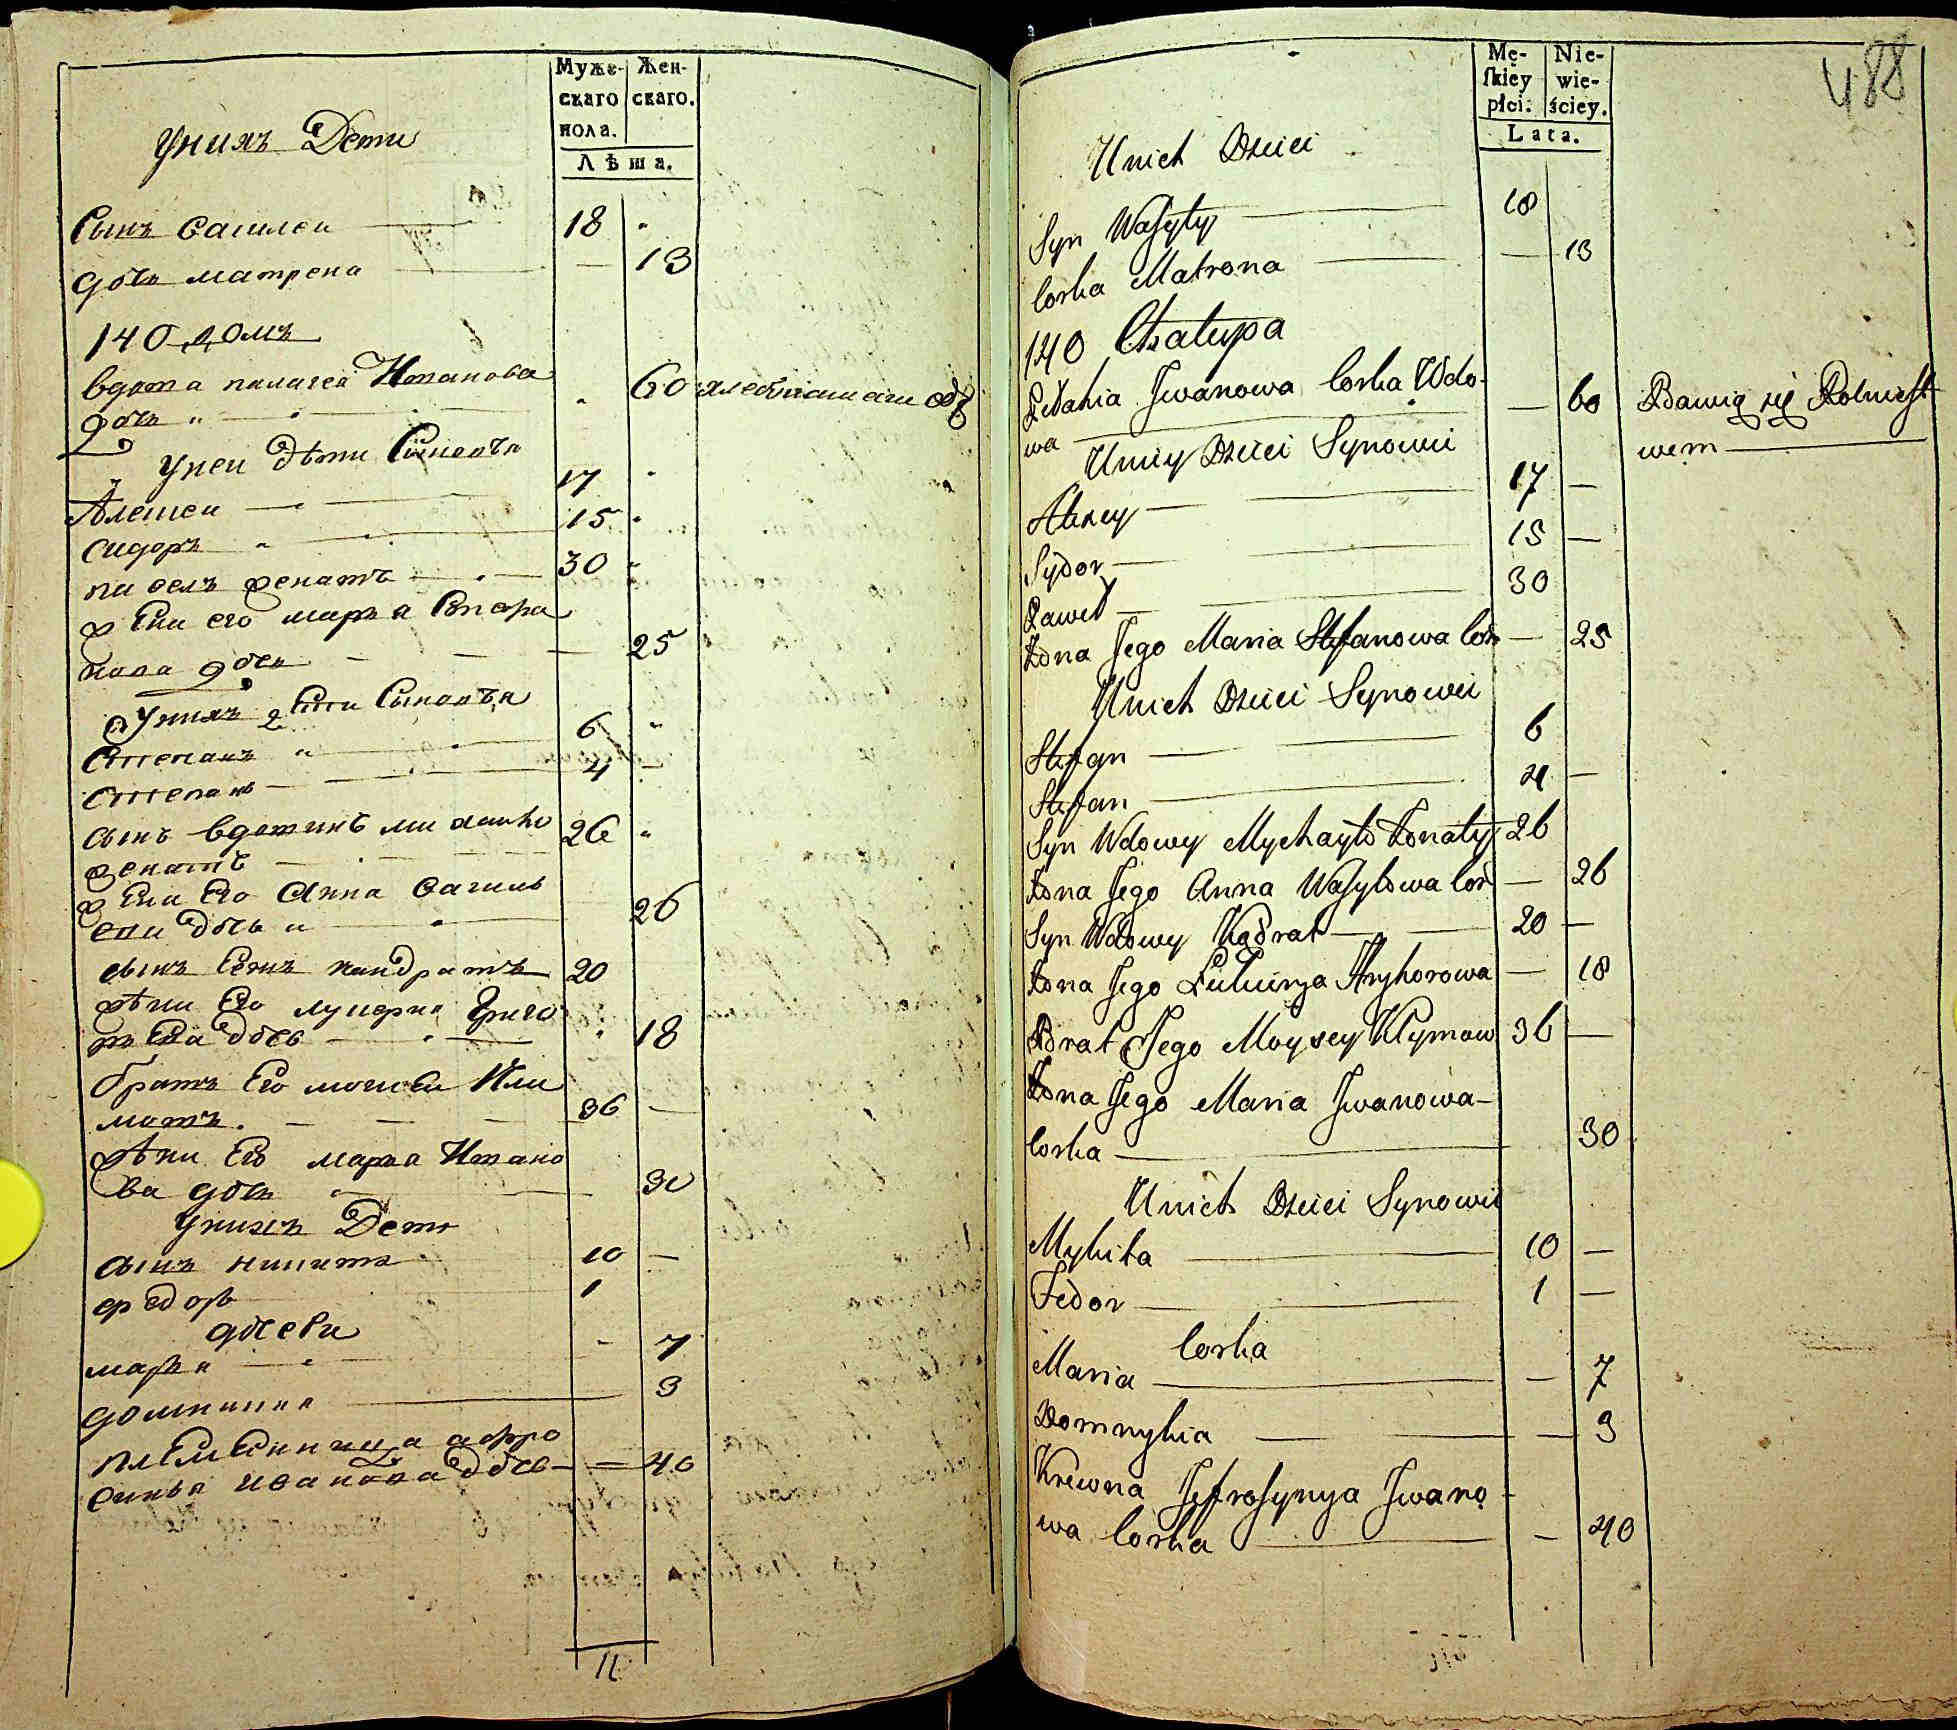 Муже-
скаго
пола.
Жен-
скаго.
Лѣта.
Униxъ Дети
Сынъ Василеи 18
дочь матрена 13
140 домъ
вдова палагея Иванова 60
дочь
Унеи дѣти Сыновья
Алешеи 17
сидоръ 15
павелъ женатъ 30
жена его марья Степа
нова дочь 25
Унихъ дѣти Сыновья
Степанъ 6
Степанъ 4
сынъ вдовинъ михаило 26
женатъ
жена Его Анна васили
ева дочь 26
сынъ Еянъ кандратъ 20
жена Его лукеря Григо
рьева дочь 18
братъ Его моисеи Кли
мовъ. 36
жена Его марья Ивано
ва дочь 30
Унихъ Дети
сынъ никита 10
федоръ 1
дочери
марья 7
домникия 3
племяница афро
синья иванова дочь 40
11
Mę-
skiey
płci.
Nie-
wie-
ściey.
Lata.
488
Unich Dzieci
Syn Wasyly 18
Corka Matrona 13
140 Chałupa
Pelahia Jwanowa Corka Wdo- 60 Bawią się Rolnict
wa wem
Uniey Dzieci Synowii
Alexey 17
Sydor 15
Paweł 30
Żona Jego Maria Stefanowa Cor 25
Unich Dzieci Synowii
Stefan 6
Stefan 4
Syn Wdowy Mychayło Żonaty 26
Żona Jego Anna Wasylowa Cor 26
Syn Wdowy Kądrat 20
Żona Jego Lukierya Hryhorowa 18
Brat Jego Moysey Klymow 36
Żona Jego Maria Jwanowa
Corka 30
Unich Dzieci Synowii
Mykita 10
Fedor 1
Corka
Maria 7
Domnykia 3
Krewna Jefrosynya Jwano
wa Corka 40